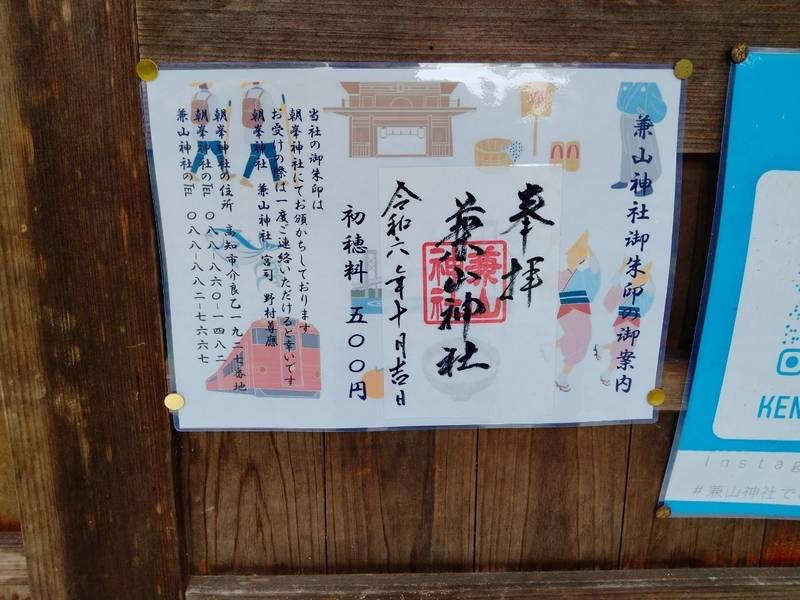 兼山神社御朱印の御案内
奉拝
兼山神社
兼山
神社
令和六年十月吉日
初穂料 五〇〇円
当社の御朱印は
朝峯神社にてお頒かちしております
お受けの際は一度ご連絡いただけると幸いです
朝峯神社 兼山神社 宮司 野村尊應
朝峯神社の住所 高知市介良乙一九二七番地
朝峯神社の℡ 〇八八-八六〇-一四八二
兼山神社の℡ 〇八八-八八二-七六六七
KEN
Instag
#兼山神社で